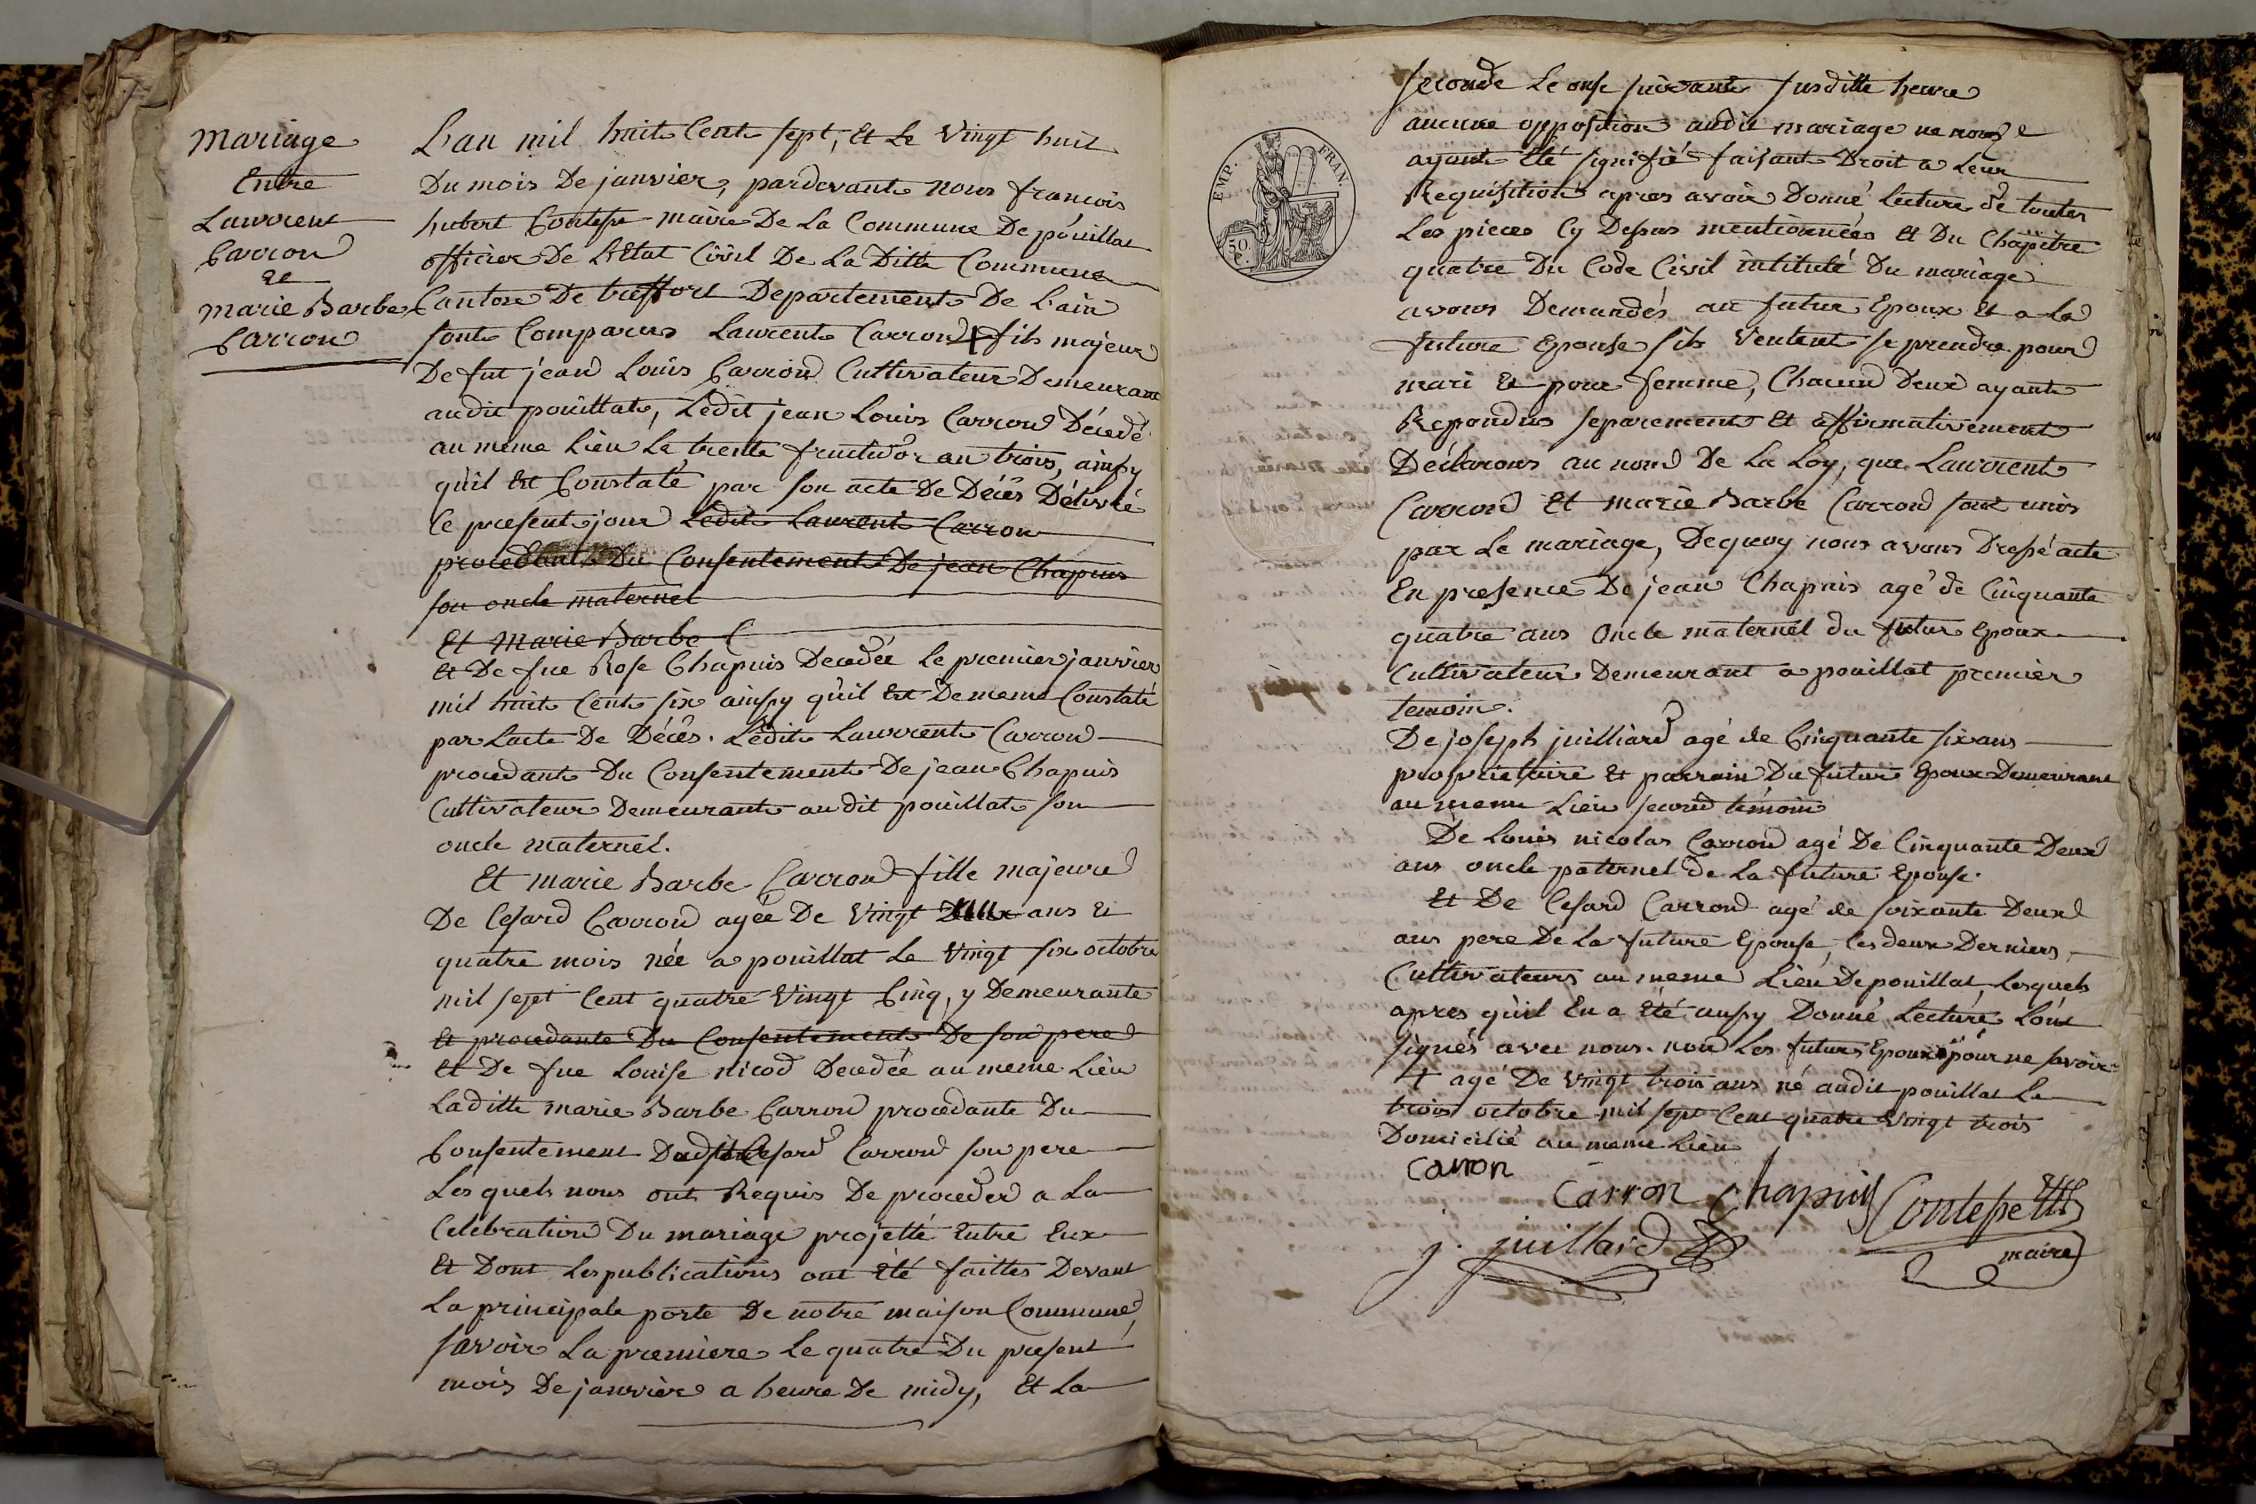 mariage
Entre
Laurent
Carron
et
marie Barbe
Carron
L'an mil huit Cent sept, Et Le Vingt huit
Du mois De janvier, pardevant nous francois
hubert Contesse maire De La Commune De pouillat
officier De L'Etat Civil De La Ditte Commune
Canton De treffort Departement De L'ain
sont Comparus Laurent Carron + fils majeur
De fut jean Louis Carron Cultivateur Demeurant
audit pouillat, Ledit jean Louis Carron Décedé
au même Lieu Le trente fructidor an trois, ainsy
qu'il Est Constaté par son acte De Décès Délivré
Ce present jour Ledit Laurent Carron
procedant Du Consentement De jean Chapuis
son oncle maternel
Et Marie Barbe C
Et De fue Rose Chapuis Decedée Le premier janvier
mil huit Cent six ainsy qu'il Est De meme Constaté
par L'acte De Décès. Ledit Laurent Carron
procedant Du Consentement De jean Chapuis
Cultivateur Demeurant audit pouillat son
oncle maternel.
Et marie Barbe Carron fille majeure
De Cesard Carron agée De Vingt ans Et
quatre mois née a pouillat Le Vingt six octobre
mil sept Cent quatre Vingt Cinq, y Demeurante
Et procedante Du Consentement De son pere
Et De fue Louise nicod Decedée au meme Lieu
Laditte marie Barbe Carron procedante Du
Consentement Dudit Cesard Carron son pere
Les quels nous ont Requis De proceder a La
Celebration Du mariage projetté Entre Eux
Et Dont Les publications ont Eté faittes Devant
La principale porte De notre maison Commune,
savoir La premiere Le quatre Du present
mois De janvier a heure De midy, Et La
EMP. FRAN.
50.
C.
seconde Le onse suivant susditte heure
aucune opposition audit mariage ne nous
ayant Eté signifié faisant Droit a Leur
Requisition apres avoir Donné Lecture de toutes
Les pieces Cy Dessus mentionnées Et Du Chapitre
quatre Du Code Civil intitulé Du mariage
avons Demandés au futur Epoux Et a La
future Epouse s'ils Veulent se prendre pour
mari Et pour femme, Chacun Deux ayant
Repondus separement Et affirmativement
Déclarons au nom De La Loy, que Laurent
Carron Et marie Barbe Carron sont unis
par Le mariage, De quoy nous avons Dressé acte
En presence De jean Chapuis agé de Cinquante
quatre ans Oncle maternel du futur Epoux
Cultivateur Demeurant a pouillat premier
temoin.
De joseph juilliard agé de Cinquante six ans
proprietaire Et parrain Du futur Epoux Demeurant
au meme Lieu second témoin
De Louis nicolas Carron agé De Cinquante Deux
ans oncle paternel de La future Epouse.
Et De Cesard Carron agé de soixante Deux
ans pere De La future Epouse, les deux Derniers
Cultivateurs au meme Lieu De pouillat, Lesquels
apres qu'il En a Eté ausy Donné Lecture L'ont
signés avec nous. non Les futurs Epoux pour ne savoir
+ agé De Vingt trois ans né audit pouillat Le
trois octobre mil sept Cent quatre Vingt trois
Domicilié au meme Lieu
Carron
Carron Chapuis Contesse
j. juillard maire